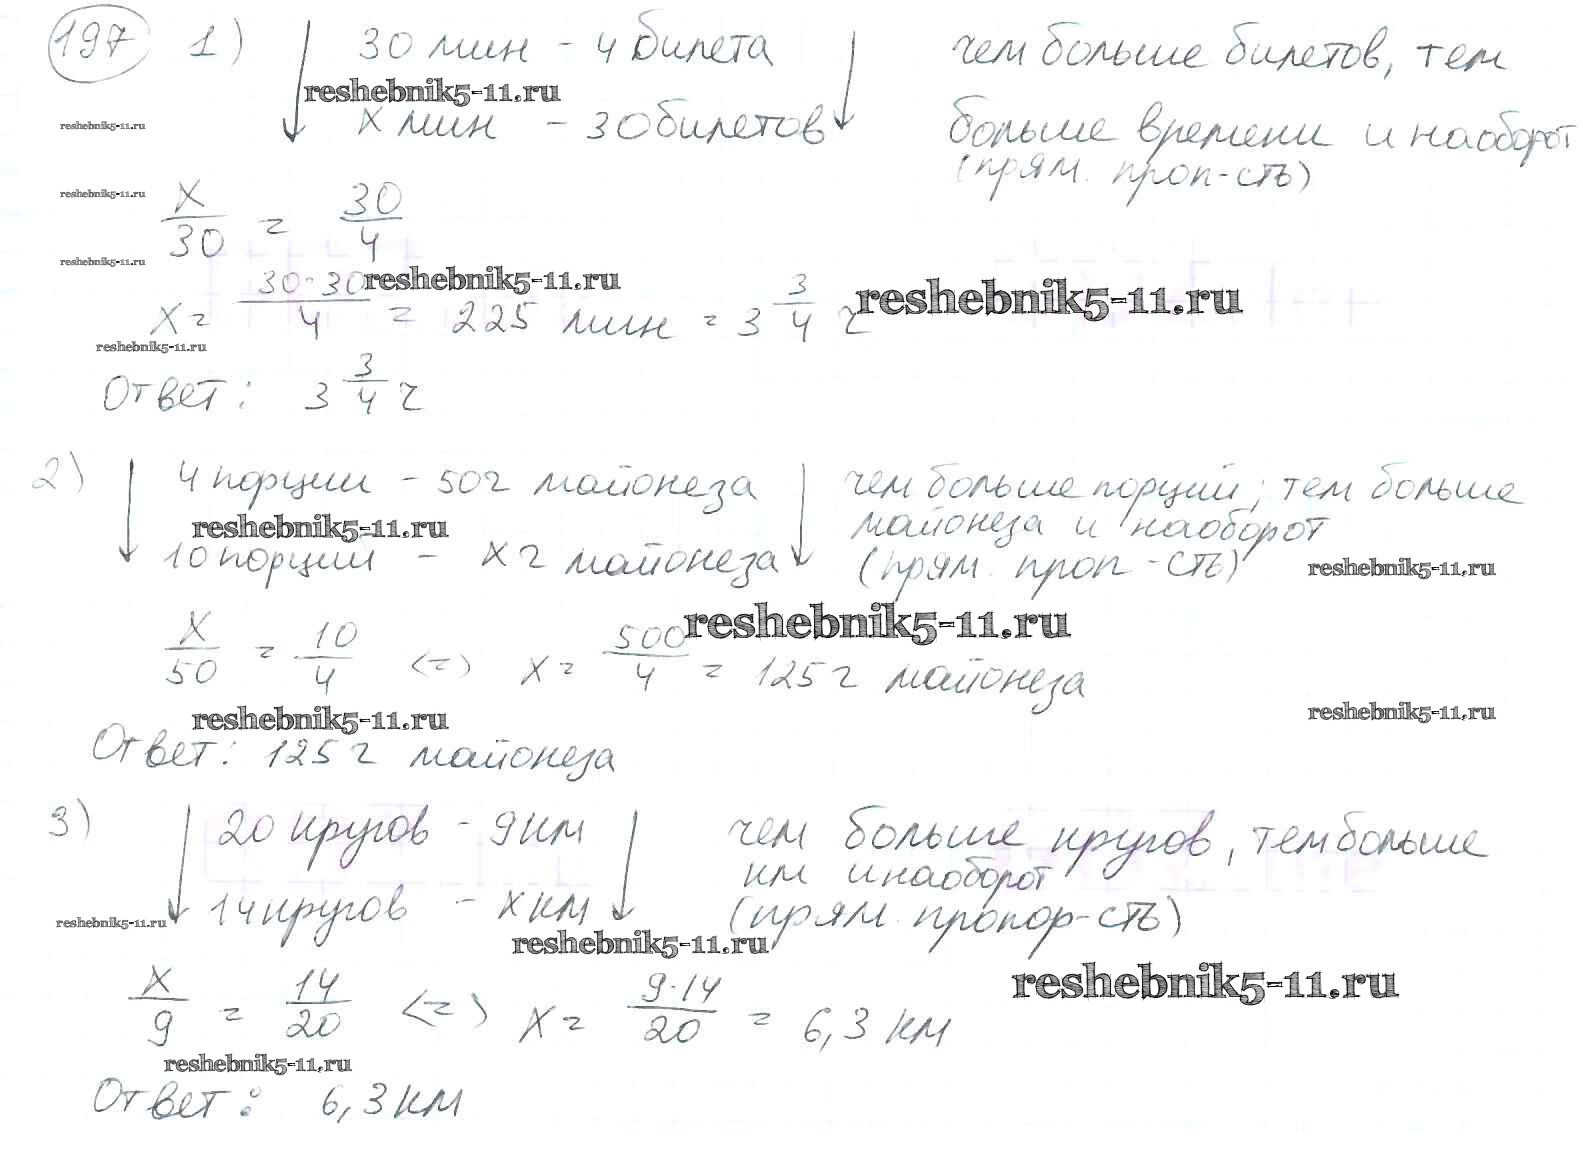 197 1) 30 мин - 4 билета чем больше билетов, тем
reshebnik5-11.ru
reshebnik5-11.ru x мин - 30 билетов больше времени и наоборот
(прям. проп-сть)
reshebnik5-11.ru
x/30 = 30/4
reshebnik5-11.ru
x = 30·30/4 = 225 мин = 3 3/4 ч
reshebnik5-11.ru reshebnik5-11.ru
reshebnik5-11.ru
Ответ: 3 3/4 ч
2) 4 порции - 50 г майонеза чем больше порций, тем больше
reshebnik5-11.ru майонеза и наоборот
10 порции - x г майонеза (прям. проп-сть) reshebnik5-11.ru
reshebnik5-11.ru
x/50 = 10/4 <=> x = 500/4 = 125 г майонеза
reshebnik5-11.ru reshebnik5-11.ru
Ответ: 125 г майонеза
3) 20 кругов - 9 км чем больше кругов, тем больше
км и наоборот
14 кругов - x км (прям. пропор-сть)
reshebnik5-11.ru reshebnik5-11.ru
reshebnik5-11.ru
x/9 = 14/20 <=> x = 9·14/20 = 6,3 км
reshebnik5-11.ru
Ответ: 6,3 км